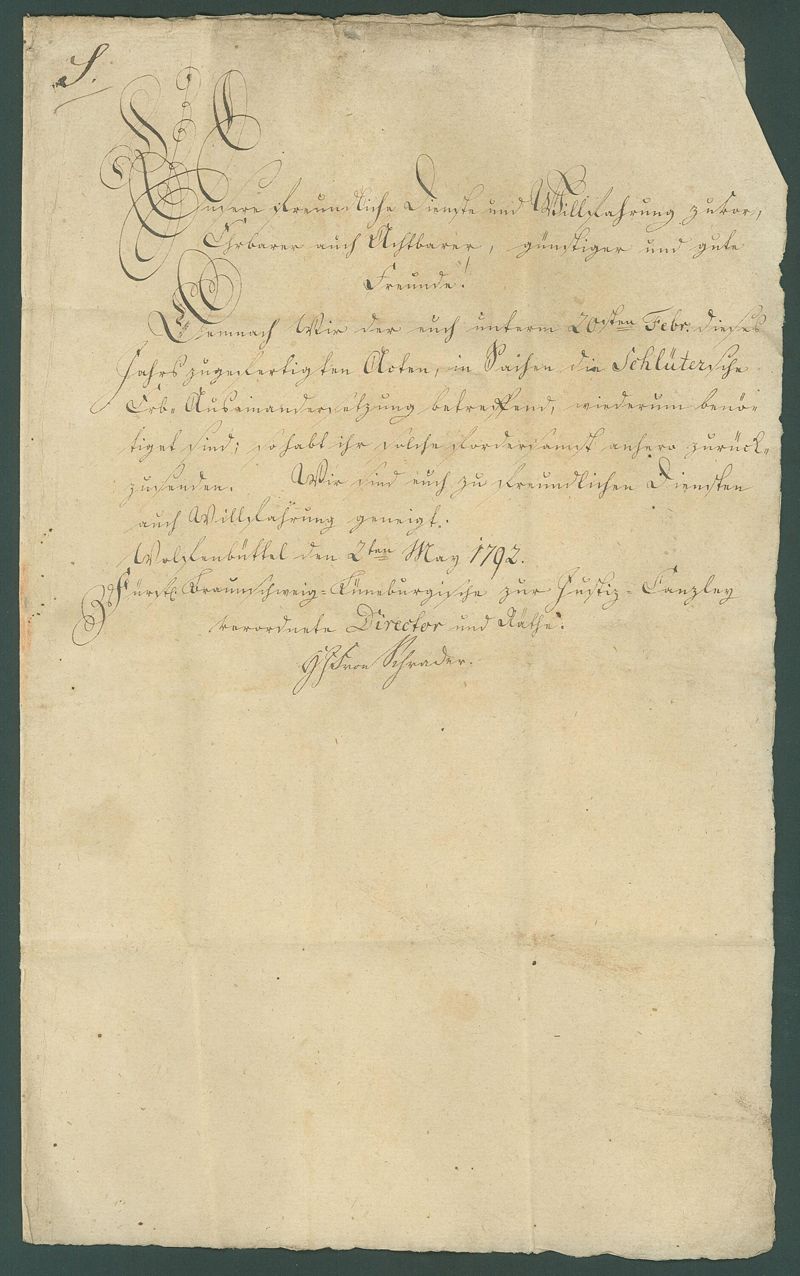 S.
Unsere Freundliche Dienste und Willfahrung zuvor,
Ehrbarer auch Achtbarer, günstiger und gute
Freunde!
Demnach Wir der euch unterm 20sten Febr. dieses
Jahrs zugefertigten Acten, in Sachen die Schlütersche
Erb-Auseinandersetzung betreffend, wiederum benö-
tiget sind; so habt ihr solche fordersamst anhero zurück-
zusenden. Wir sind euch zu freundlichen Diensten
auch Willfahrung geneigt.
Wolfenbüttel den 2ten May 1792.
Fürstl. Braunschweig-Lüneburgische zur Justiz-Canzley
verordnete Director und Räthe.
von Schrader.